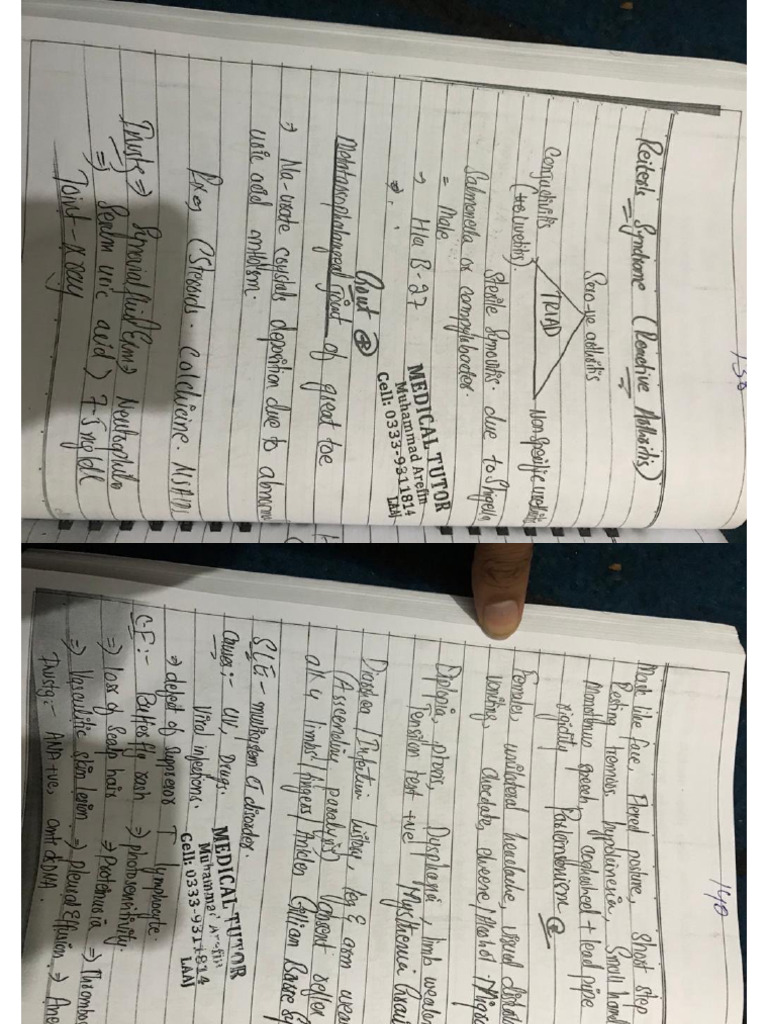 138
Reiter's Syndrome (Reactive Arthritis)
Sero-ve arthritis
TRIAD
Conjuctivitis
(+re Uveitis).
Non Specific urethritis
Sterile Synovitis. due to Shigella
Salmonella or compylobacter.
= Male
→ Hla B-27
MEDICAL TUTOR
Muhammad Arefin
Cell: 0333-9311814
LAAJ
Gout
Metatarsophalangeal Joint of great toe
→ Na-urate crystals deposition due to abnorm
uric acid mtbolism.
Rx→ CSteroids. Colchicine. NSAID
Invsts⇒ Synovial fluid Exm⇒ Neutrophils
⇒ Serum uric acid > 7-5 mg/dl
Joint-xray
140
Mask like face, Flexed posture, Short step
Resting tremors, hypokinesia, Small hand
Monotonus speech, cogwheel + lead pipe
rigidity Parkinsonism
Females, unilateral headache, visual disturb
vomiting, Chocolate, cheese/Alcohol. Migra
Diplopia, ptosis, Dysphagia, limb weaknes
Tensilon test +ve! Mysthenia Gravi
Diarrhea/Infection history, leg & arm weak
(Assending paralysis)
all 4 limbs/fingers/Ankles Gillian Barre Sy
SLE:- multisystem CT disorder.
Causes:- UV, Drugs.
Viral infections.
MEDICAL TUTOR
Muhammad Arefin
Cell: 0333-9311814
LAAJ
⇒ defect of suppresor T lymphocyte.
C.F:- Butterfly rash ⇒ photosensitivity.
⇒ loss of Scalp hair ⇒ Proteinuria ⇒ Thrombo
⇒ Vasculitic Skin lesion. ⇒ Pleural Effusion. ⇒ Ane
Invstg:- ANA +ve, anti dsDNA.